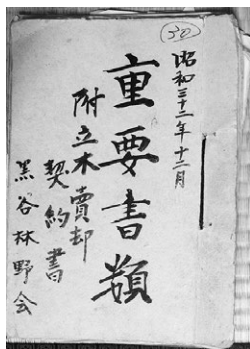 30
昭和三十二年十二月
重要書類
附立木賣却
契約書
黒谷林野会